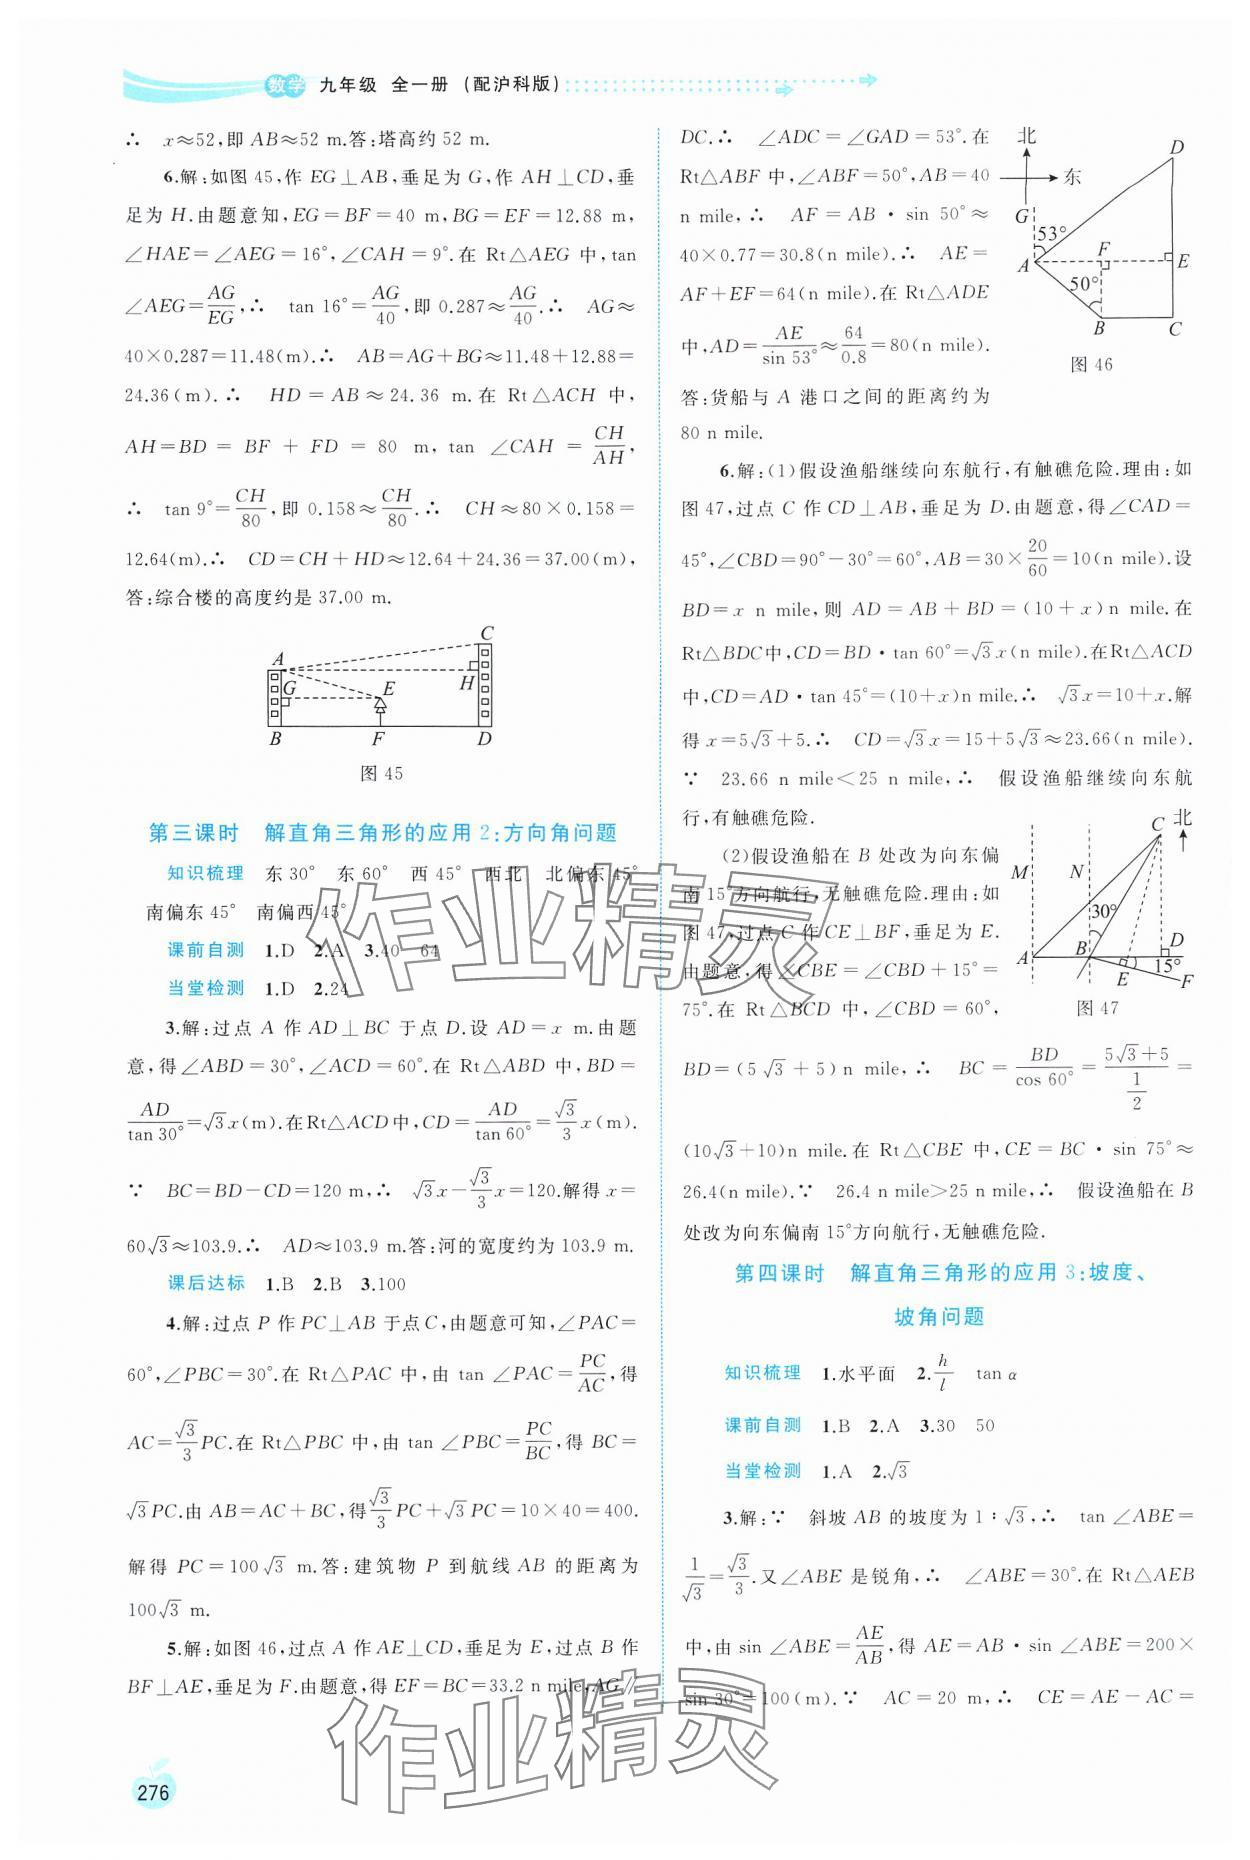 数学 九年级 全一册 (配沪科版)
∴ x≈52,即 AB≈52 m.答:塔高约 52 m.
6.解:如图 45,作 EG⊥AB,垂足为 G,作 AH⊥CD,垂
足为 H.由题意知,EG=BF=40 m,BG=EF=12.88 m,
∠HAE=∠AEG=16°,∠CAH=9°.在 Rt△AEG 中,tan
∠AEG=AG/EG,∴ tan 16°=AG/40,即 0.287≈AG/40.∴ AG≈
40×0.287=11.48(m).∴ AB=AG+BG≈11.48+12.88=
24.36(m).∴ HD=AB≈24.36 m.在 Rt△ACH 中,
AH=BD=BF+FD=80 m,tan ∠CAH=CH/AH,
∴ tan 9°=CH/80,即 0.158≈CH/80.∴ CH≈80×0.158=
12.64(m).∴ CD=CH+HD≈12.64+24.36=37.00(m),
答:综合楼的高度约是 37.00 m.
A G E H C
B F D
图 45
第三课时 解直角三角形的应用 2:方向角问题
知识梳理 东 30° 东 60° 西 45° 西北 北偏东 45°
南偏东 45° 南偏西 45°
课前自测 1.D 2.A 3.40 64
当堂检测 1.D 2.24
3.解:过点 A 作 AD⊥BC 于点 D.设 AD=x m.由题
意,得∠ABD=30°,∠ACD=60°.在 Rt△ABD 中,BD=
AD/tan 30°=√3x(m).在Rt△ACD中,CD=AD/tan 60°=√3/3x(m).
∵ BC=BD-CD=120 m,∴ √3x-√3/3x=120.解得 x=
60√3≈103.9.∴ AD≈103.9 m.答:河的宽度约为 103.9 m.
课后达标 1.B 2.B 3.100
4.解:过点 P 作 PC⊥AB 于点 C,由题意可知,∠PAC=
60°,∠PBC=30°.在 Rt△PAC 中,由 tan ∠PAC=PC/AC,得
AC=√3/3PC.在 Rt△PBC 中,由 tan ∠PBC=PC/BC,得 BC=
√3PC.由 AB=AC+BC,得√3/3PC+√3PC=10×40=400.
解得 PC=100√3 m.答:建筑物 P 到航线 AB 的距离为
100√3 m.
5.解:如图 46,过点 A 作 AE⊥CD,垂足为 E,过点 B 作
BF⊥AE,垂足为 F.由题意,得 EF=BC=33.2 n mile,AG∥
276
DC.∴ ∠ADC=∠GAD=53°.在
Rt△ABF 中,∠ABF=50°,AB=40
n mile,∴ AF=AB·sin 50°≈
40×0.77=30.8(n mile).∴ AE=
AF+EF=64(n mile).在 Rt△ADE
中,AD=AE/sin 53°≈64/0.8=80(n mile).
答:货船与 A 港口之间的距离约为
80 n mile.
北 东 D G 53° A F E 50° B C
图 46
6.解:(1)假设渔船继续向东航行,有触礁危险.理由:如
图 47,过点 C 作 CD⊥AB,垂足为 D.由题意,得∠CAD=
45°,∠CBD=90°-30°=60°,AB=30×20/60=10(n mile).设
BD=x n mile,则 AD=AB+BD=(10+x)n mile.在
Rt△BDC中,CD=BD·tan 60°=√3x(n mile).在Rt△ACD
中,CD=AD·tan 45°=(10+x)n mile.∴ √3x=10+x.解
得 x=5√3+5.∴ CD=√3x=15+5√3≈23.66(n mile).
∵ 23.66 n mile<25 n mile,∴ 假设渔船继续向东航
行,有触礁危险.
(2)假设渔船在 B 处改为向东偏
南 15°方向航行,无触礁危险.理由:如
图 47,过点 C 作 CE⊥BF,垂足为 E.
由题意,得∠CBE=∠CBD+15°=
75°.在 Rt△BCD 中,∠CBD=60°,
C 北 M N 30° A B D E 15° F
图 47
BD=(5√3+5)n mile,∴ BC=BD/cos 60°=(5√3+5)/(1/2)=
(10√3+10)n mile.在 Rt△CBE 中,CE=BC·sin 75°≈
26.4(n mile).∵ 26.4 n mile>25 n mile,∴ 假设渔船在 B
处改为向东偏南 15°方向航行,无触礁危险.
第四课时 解直角三角形的应用 3:坡度、
坡角问题
知识梳理 1.水平面 2.h/l tan α
课前自测 1.B 2.A 3.30 50
当堂检测 1.A 2.√3
3.解:∵ 斜坡 AB 的坡度为 1∶√3,∴ tan ∠ABE=
1/√3=√3/3.又∠ABE 是锐角,∴ ∠ABE=30°.在 Rt△AEB
中,由 sin ∠ABE=AE/AB,得 AE=AB·sin ∠ABE=200×
sin 30°=100(m).∵ AC=20 m,∴ CE=AE-AC=
作业精灵
作业精灵